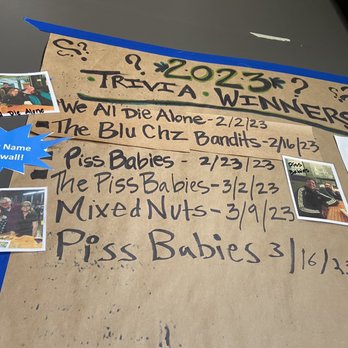 ? ? *2023* ? ?
TRIVIA • WINNERS
We All Die Alone - 2/2/23
The Blu Chz Bandits - 2/16/23
Piss Babies - 2/23/23
The Piss Babies - 3/2/23
Mixed Nuts - 3/9/23
Piss Babies 3/16/23
Die Alone
Name
wall!
Piss